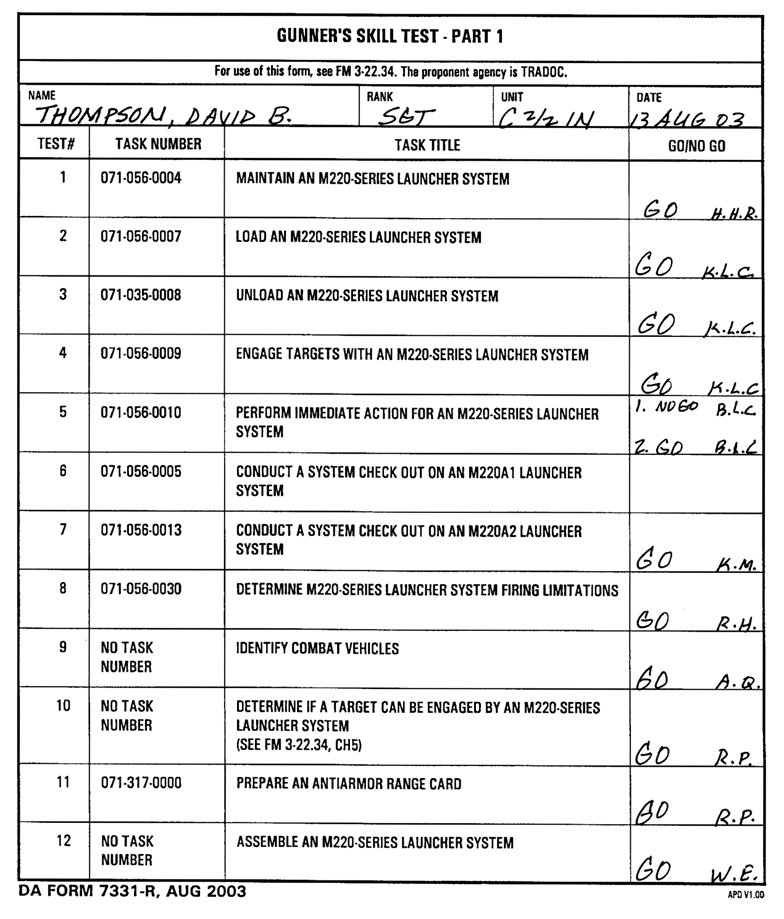 GUNNER'S SKILL TEST - PART 1
For use of this form, see FM 3-22.34. The proponent agency is TRADOC.
NAME RANK UNIT DATE
THOMPSON, DAVID B. SGT C 2/2 IN 13 AUG 03
TEST# TASK NUMBER TASK TITLE GO/NO GO
1 071-056-0004 MAINTAIN AN M220-SERIES LAUNCHER SYSTEM
GO H.H.R.
2 071-056-0007 LOAD AN M220-SERIES LAUNCHER SYSTEM
GO K.L.C.
3 071-035-0008 UNLOAD AN M220-SERIES LAUNCHER SYSTEM
GO K.L.C.
4 071-056-0009 ENGAGE TARGETS WITH AN M220-SERIES LAUNCHER SYSTEM
GO K.L.C
5 071-056-0010 PERFORM IMMEDIATE ACTION FOR AN M220-SERIES LAUNCHER 1. NO GO B.L.C
SYSTEM 2. GO B.L.C
6 071-056-0005 CONDUCT A SYSTEM CHECK OUT ON AN M220A1 LAUNCHER
SYSTEM
7 071-056-0013 CONDUCT A SYSTEM CHECK OUT ON AN M220A2 LAUNCHER
SYSTEM
GO K.M.
8 071-056-0030 DETERMINE M220-SERIES LAUNCHER SYSTEM FIRING LIMITATIONS
GO R.H.
9 NO TASK IDENTIFY COMBAT VEHICLES
NUMBER
GO A.Q.
10 NO TASK DETERMINE IF A TARGET CAN BE ENGAGED BY AN M220-SERIES
NUMBER LAUNCHER SYSTEM
(SEE FM 3-22.34, CH5)
GO R.P.
11 071-317-0000 PREPARE AN ANTIARMOR RANGE CARD
GO R.P.
12 NO TASK ASSEMBLE AN M220-SERIES LAUNCHER SYSTEM
NUMBER
GO W.E.
DA FORM 7331-R, AUG 2003 APD V1.00